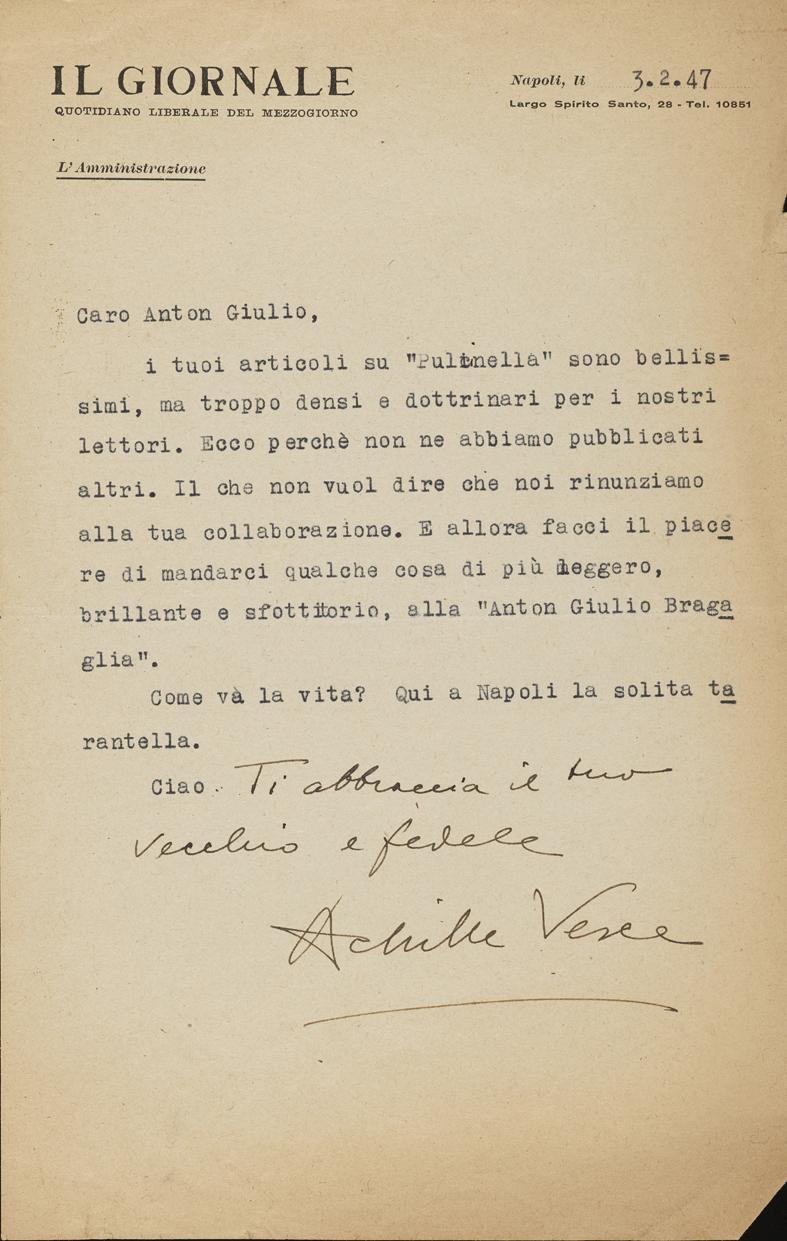 IL GIORNALE
QUOTIDIANO LIBERALE DEL MEZZOGIORNO
Napoli, li 3.2.47
Largo Spirito Santo, 28 - Tel. 10851
L'Amministrazione
Caro Anton Giulio,
i tuoi articoli su "Pulinella" sono bellis=
simi, ma troppo densi e dottrinari per i nostri
lettori. Ecco perchè non ne abbiamo pubblicati
altri. Il che non vuol dire che noi rinunziamo
alla tua collaborazione. E allora facci il piace
re di mandarci qualche cosa di più leggero,
brillante e sfottitorio, alla "Anton Giulio Braga
glia".
Come và la vita? Qui a Napoli la solita ta
rantella.
Ciao. Ti abbraccia il tuo
vecchio e fedele
Achille Vesce